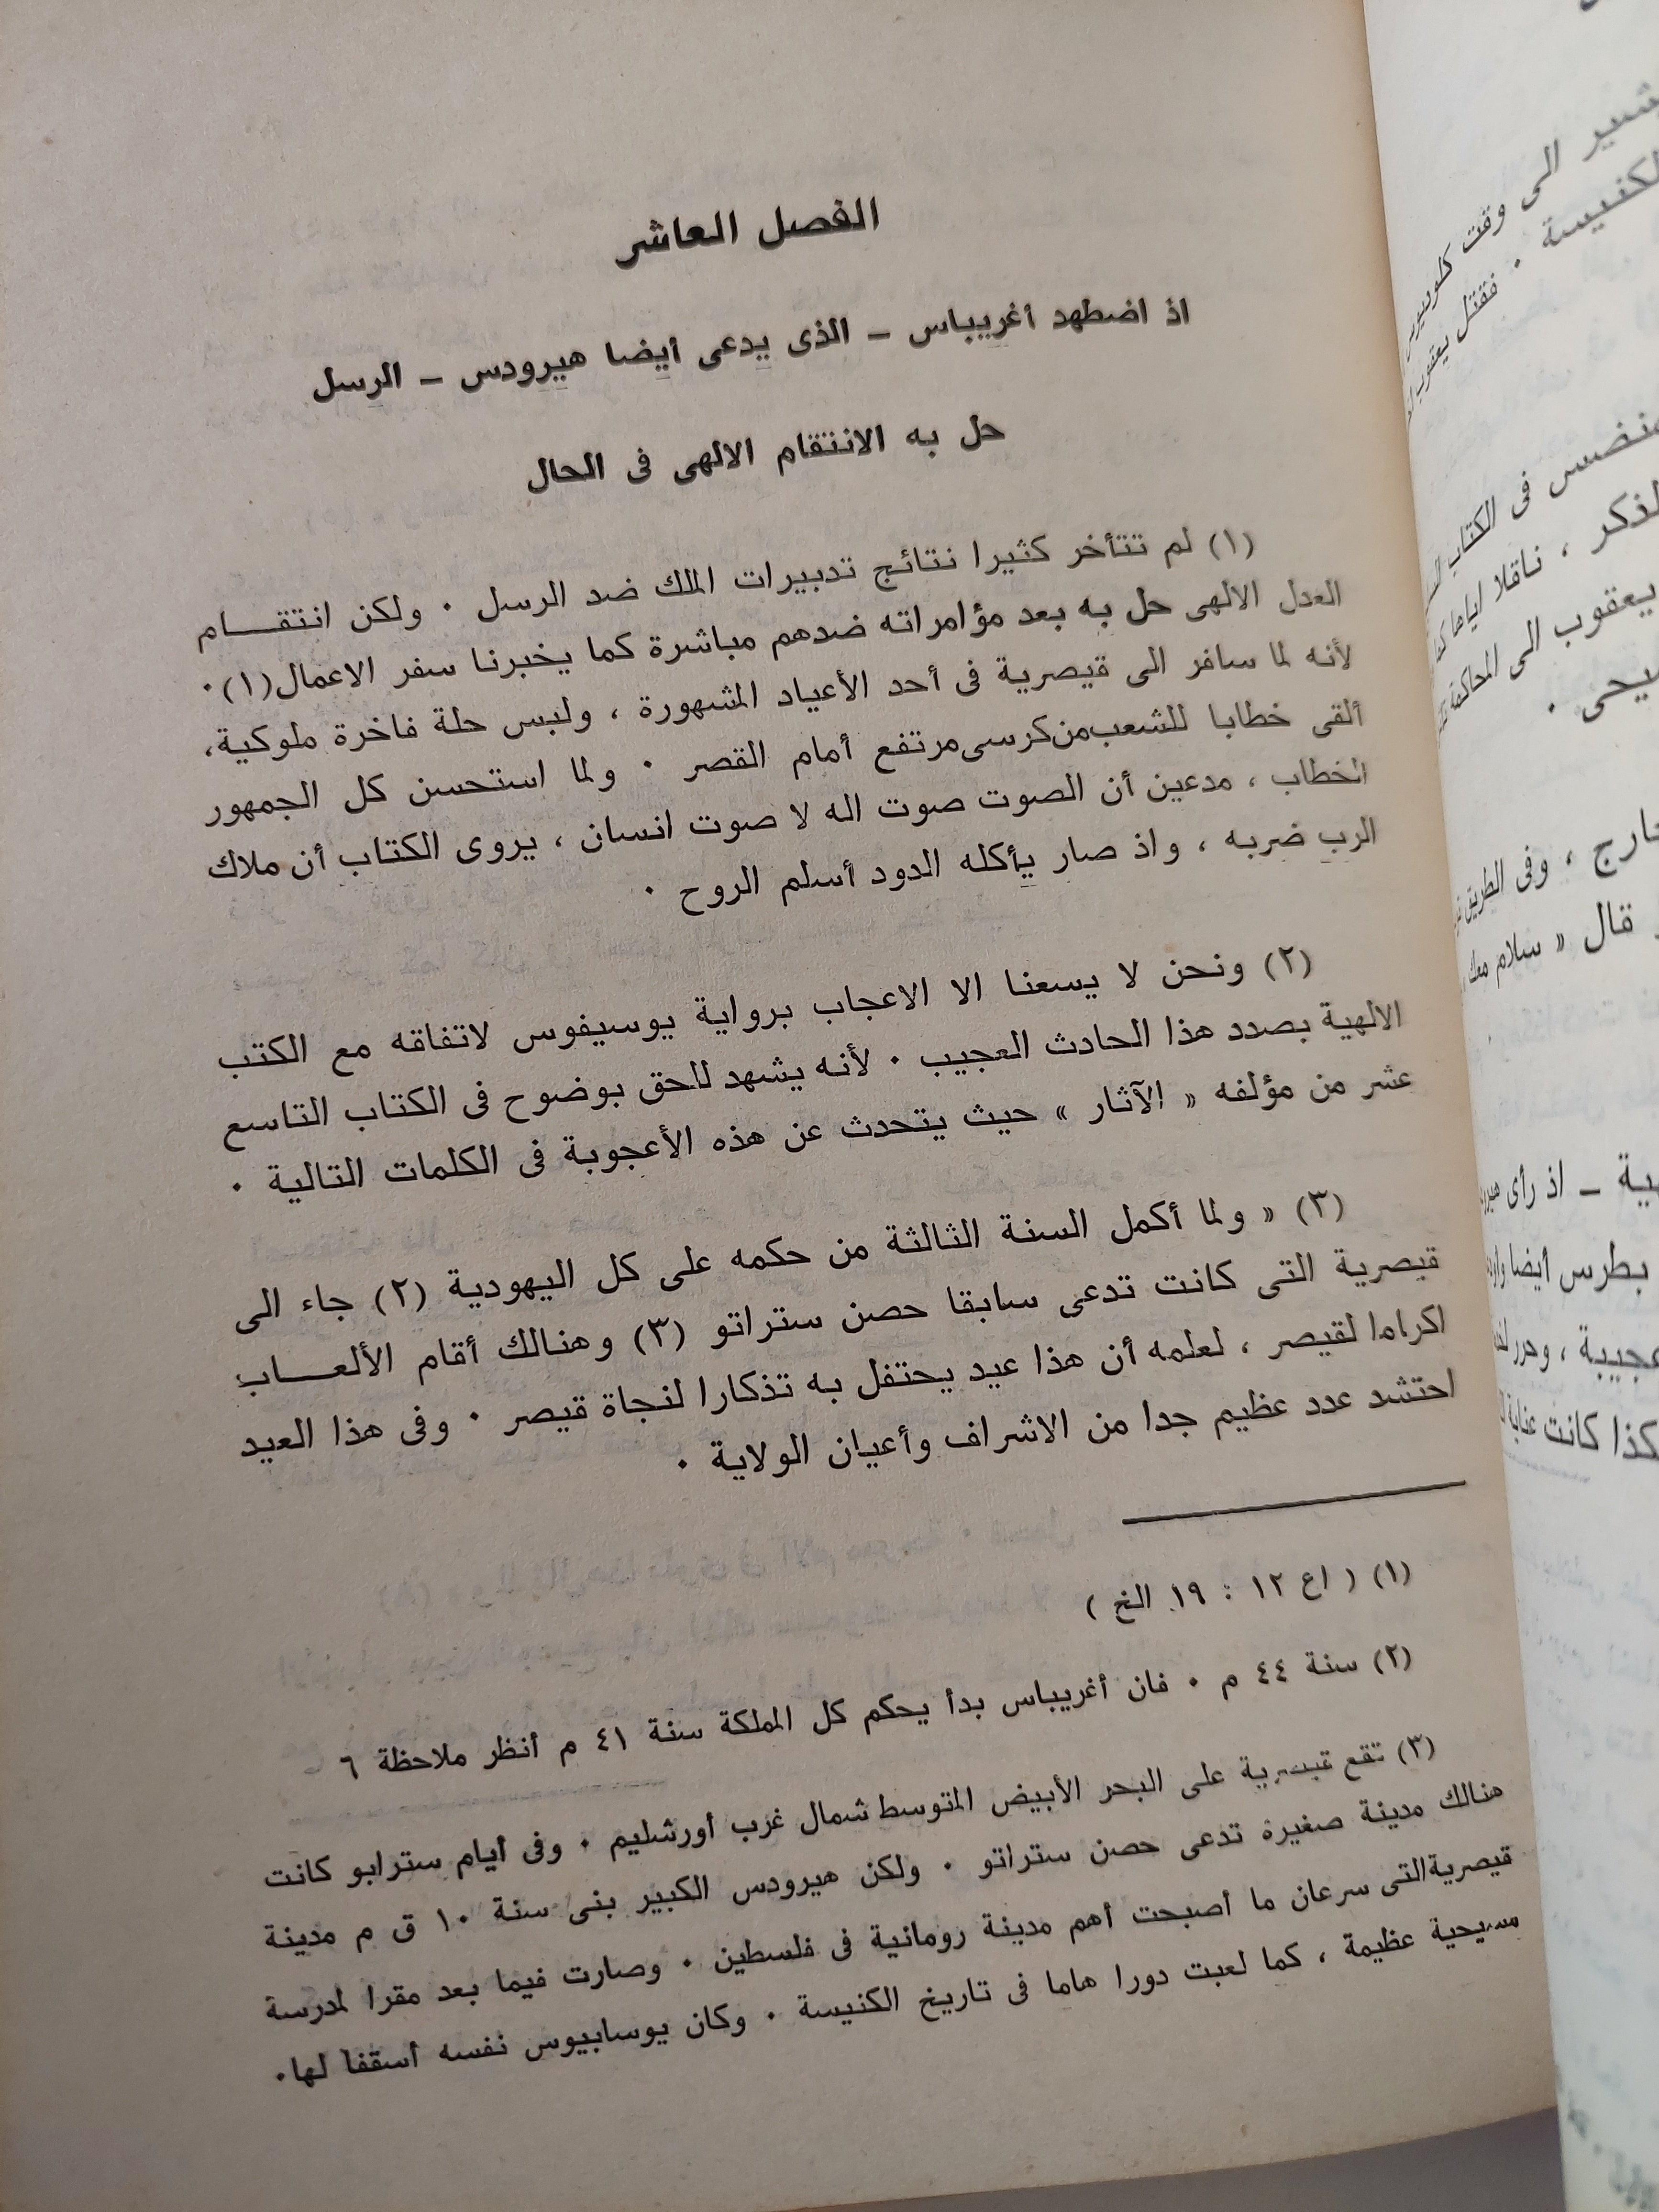 الفصل العاشر
اذ اضطهد أغريباس – الذى يدعى أيضا هيرودس – الرسل
حل به الانتقام الالهى فى الحال
(١) لم تتأخر كثيرا نتائج تدبيرات الملك ضد الرسل . ولكن انتقــام
العدل الالهى حل به بعد مؤامراته ضدهم مباشرة كما يخبرنا سفر الاعمال(١).
لأنه لما سافر الى قيصرية فى أحد الأعياد المشهورة ، ولبس حلة فاخرة ملوكية،
ألقى خطابا للشعب من كرسى مرتفع أمام القصر . ولما استحسن كل الجمهور
الخطاب ، مدعين أن الصوت صوت اله لا صوت انسان ، يروى الكتاب أن ملاك
الرب ضربه ، واذ صار يأكله الدود أسلم الروح .
(٢) ونحن لا يسعنا الا الاعجاب برواية يوسيفوس لاتفاقه مع الكتب
الالهية بصدد هذا الحادث العجيب . لأنه يشهد للحق بوضوح فى الكتاب التاسع
عشر من مؤلفه « الآثار » حيث يتحدث عن هذه الأعجوبة فى الكلمات التالية .
(٣) « ولما أكمل السنة الثالثة من حكمه على كل اليهودية (٢) جاء الى
قيصرية التى كانت تدعى سابقا حصن ستراتو (٣) وهنالك أقام الألعــاب
اكراما لقيصر ، لعلمه أن هذا عيد يحتفل به تذكارا لنجاة قيصر . وفى هذا العيد
احتشد عدد عظيم جدا من الاشراف وأعيان الولاية .
(١) ( اع ١٢ : ١٩ الخ )
(٢) سنة ٤٤ م . فان أغريباس بدأ يحكم كل المملكة سنة ٤١ م أنظر ملاحظة ٦
(٣) تقع قيصرية على البحر الأبيض المتوسط شمال غرب أورشليم . وفى أيام سترابو كانت
هنالك مدينة صغيرة تدعى حصن ستراتو . ولكن هيرودس الكبير بنى سنة ١٠ ق م مدينة
قيصرية التى سرعان ما أصبحت أهم مدينة رومانية فى فلسطين . وصارت فيما بعد مقرا لمدرسة
مسيحية عظيمة ، كما لعبت دورا هاما فى تاريخ الكنيسة . وكان يوسابيوس نفسه أسقفا لها.
الى وقت
فقتل
فى الكتاب
ناقلا اياها
يعقوب الى المحاكمة
وفى الطريق
قال « سلام معك
– اذ رأى
بطرس أيضا
كانت عناية